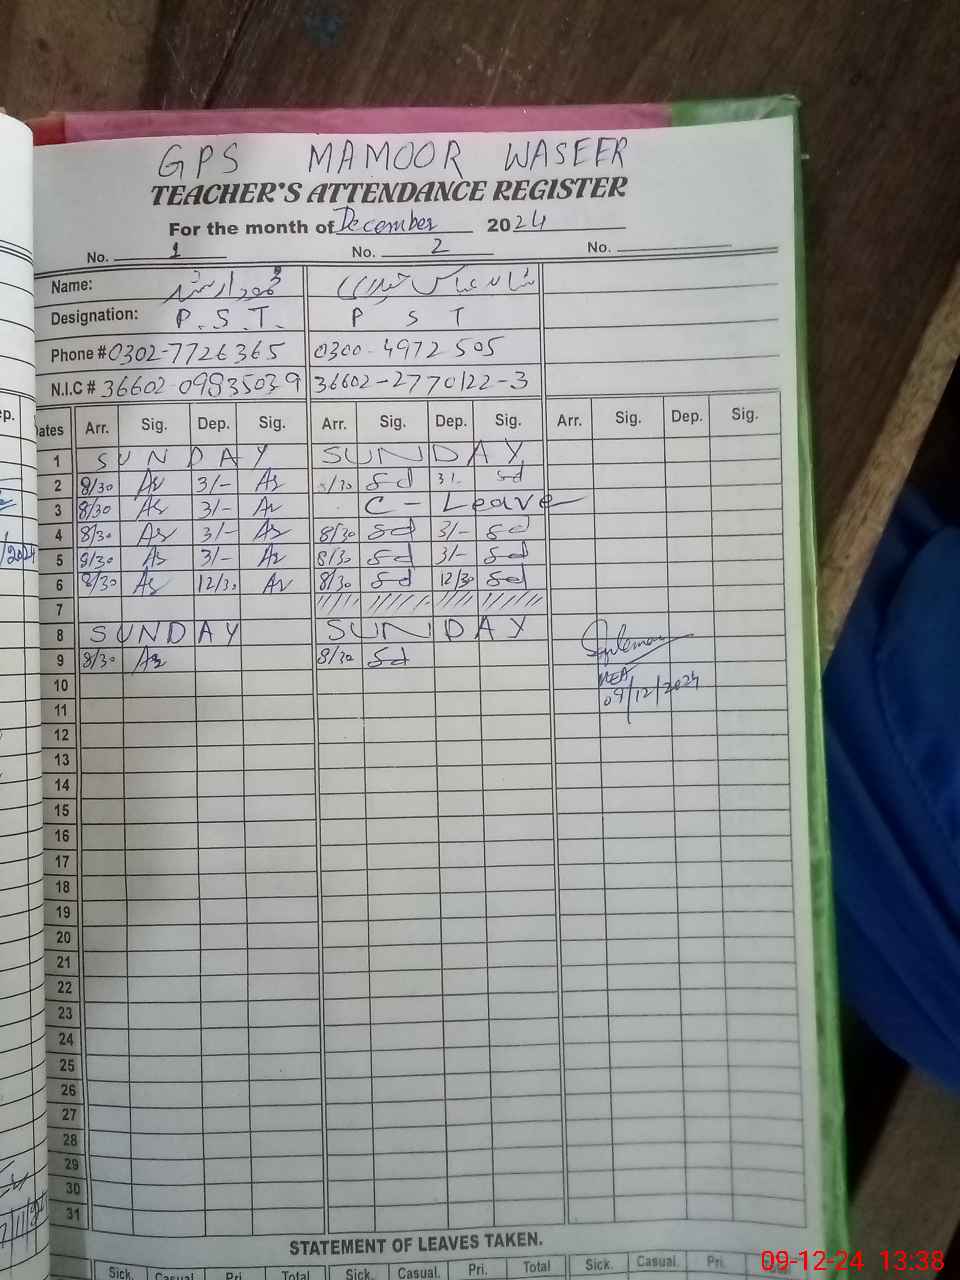 GPS MAMOOR WASEER
TEACHER'S ATTENDANCE REGISTER
For the month of December 2024
No. 1 No. 2 No.
Name:
Designation: P.S.T. P S T
Phone # 0302-7726365 0300-4972505
N.I.C # 36602-09835039 36602-2770122-3
Dates Arr. Sig. Dep. Sig. Arr. Sig. Dep. Sig. Arr. Sig. Dep. Sig.
1 SUNDAY SUNDAY
2 8/30 As 3/- As 8/30 Sd 3/- Sd
3 8/30 As 3/- As C - Leave
4 8/30 As 3/- As 8/30 Sd 3/- Sd
5 8/30 As 3/- As 8/30 Sd 3/- Sd
6 8/30 As 12/30 As 8/30 Sd 12/30 Sd
7
8 SUNDAY SUNDAY
9 8/30 As 8/30 Sd
MEA
10
09/12/2024
11
12
13
14
15
16
17
18
19
20
21
22
23
24
25
26
27
28
29
30
31
STATEMENT OF LEAVES TAKEN.
Sick. Casual. Pri. Total Sick. Casual. Pri. Total Sick. Casual. Pri.
09-12-24 13:38